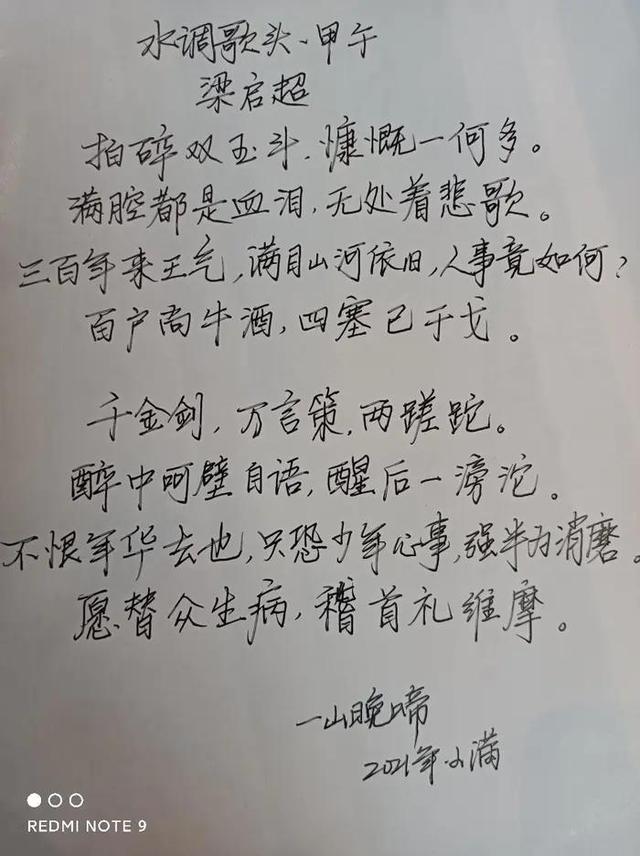 水调歌头·甲午
梁启超
拍碎双玉斗,慷慨一何多。
满腔都是血泪,无处着悲歌。
三百年来王气,满目山河依旧,人事竟如何?
百户尚牛酒,四塞已干戈。
千金剑,万言策,两蹉跎。
醉中呵壁自语,醒后一滂沱。
不恨年华去也,只恐少年心事,强半为消磨。
愿替众生病,稽首礼维摩。
一山晚啼
2021年小满
REDMI NOTE 9